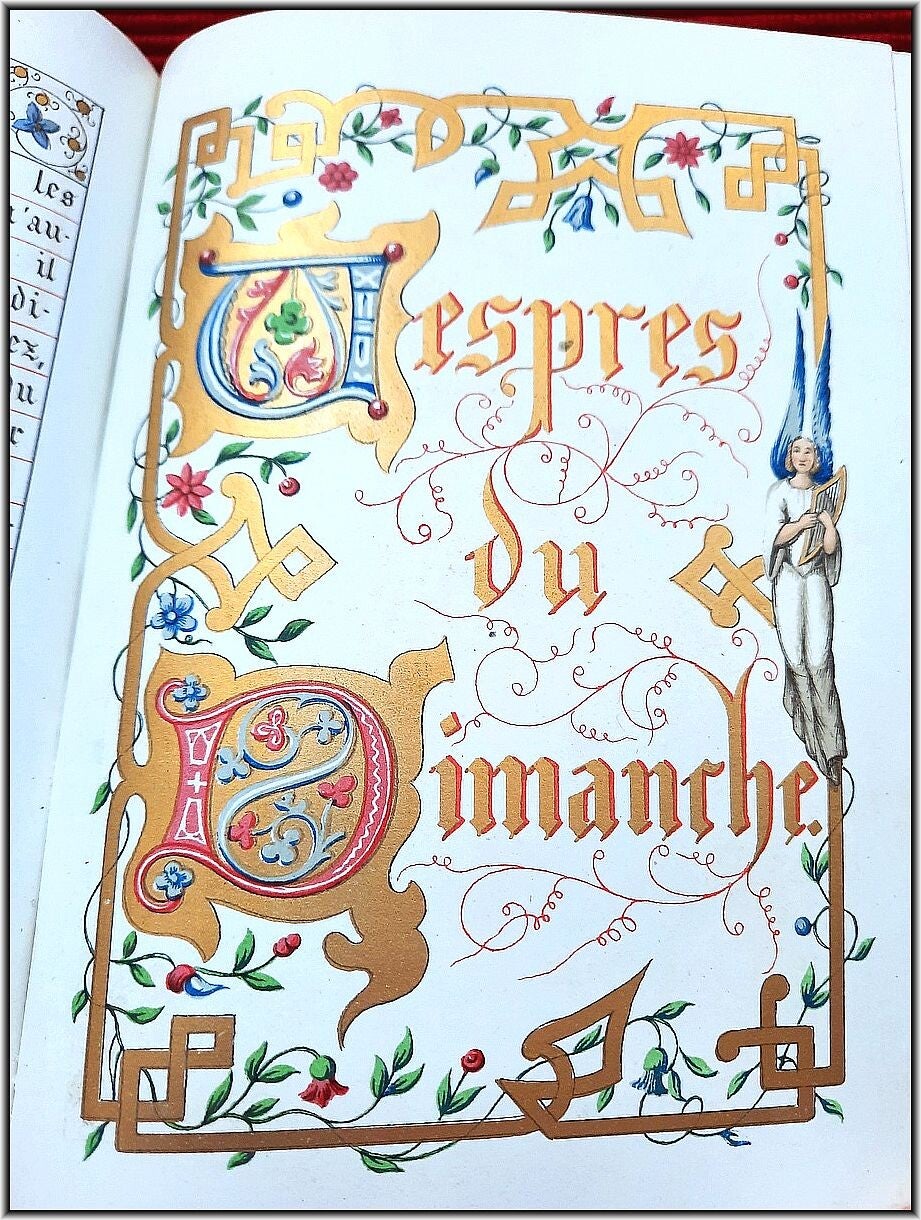 les
'au-
il
di-
ez,
Vespres
du
Dimanche.